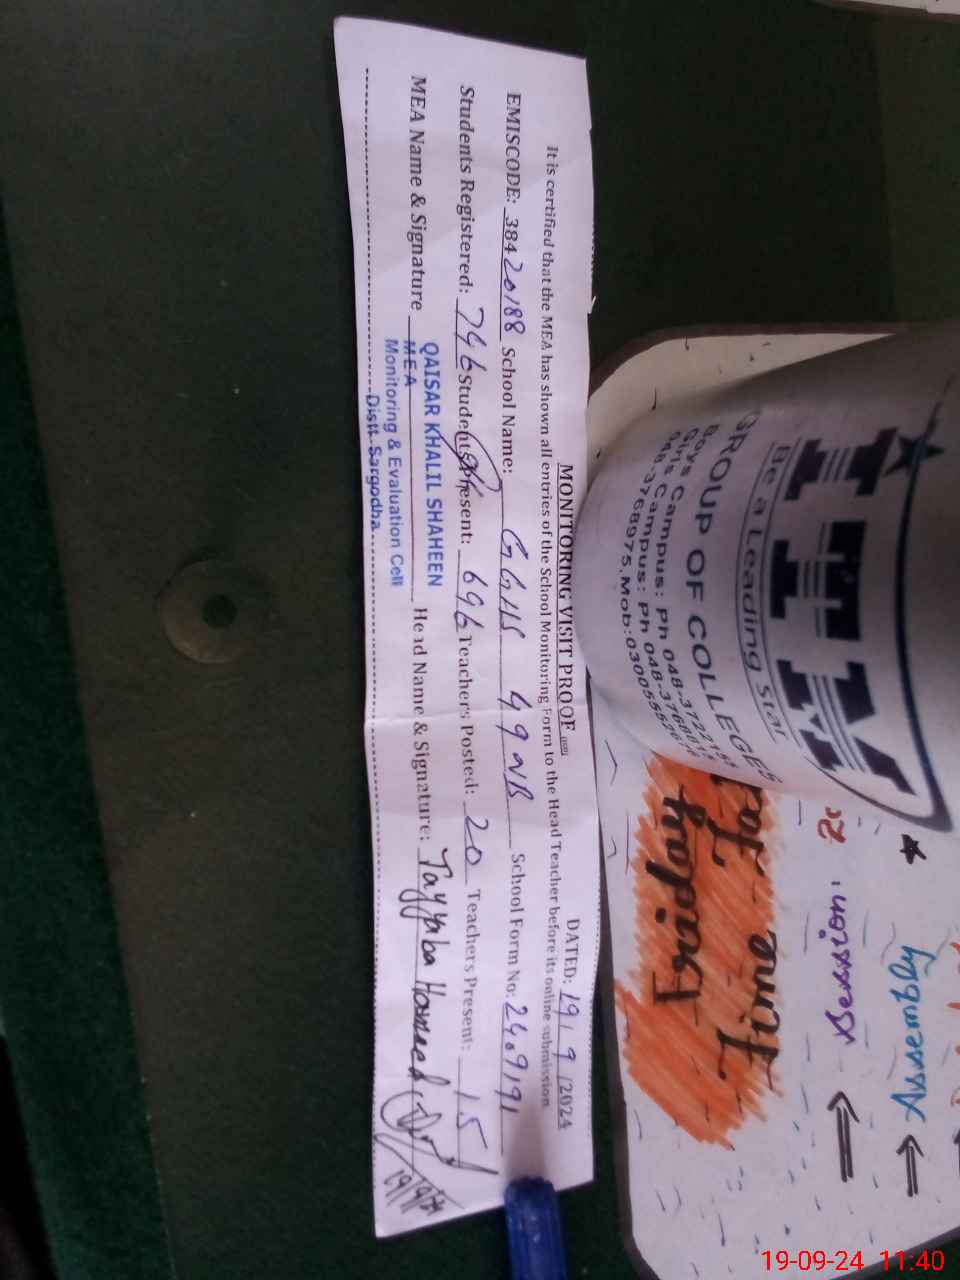 MONITORING VISIT PROOF
DATED: 19/9/2024
It is certified that the MEA has shown all entries of the School Monitoring Form to the Head Teacher before its online submission
EMISCODE: 38420188 School Name: GGHS 49 NB School Form No: 2409191
Students Registered: 746 Students Present: 696 Teachers Posted: 20 Teachers Present: 15
MEA Name & Signature Head Name & Signature: Tayyaba Hameed
19/9/24
QAISAR KHALIL SHAHEEN
MEA
Monitoring & Evaluation Cell
Distt. Sargodha
GROUP OF COLLEGES
Be a Leading Star
Boys Campus: Ph 048-3722155
Girls Campus: Ph
048-3768975, Mob:
Friday
Time
Session:
Assembly
19-09-24 11:40